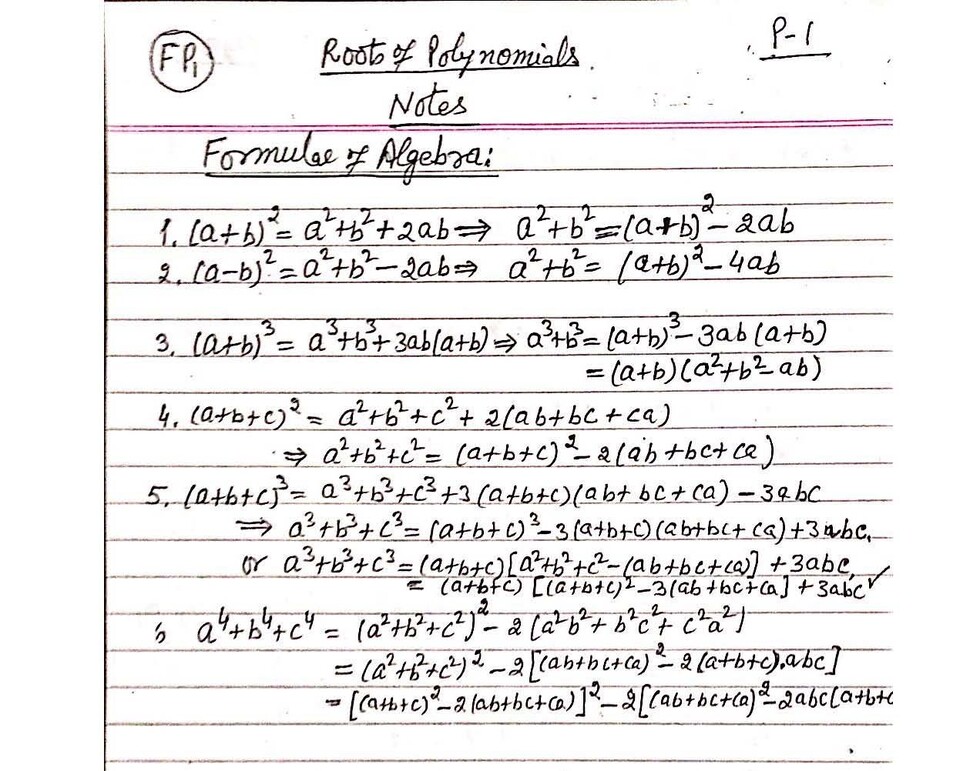 FP₁ Roots of Polynomials. P-1
Notes
Formulae of Algebra:
1. (a+b)² = a²+b²+2ab ⇒ a²+b² = (a+b)² - 2ab
2. (a-b)² = a²+b²-2ab ⇒ a²+b² = (a+b)² - 4ab
3. (a+b)³ = a³+b³+3ab(a+b) ⇒ a³+b³ = (a+b)³ - 3ab(a+b)
= (a+b)(a²+b²-ab)
4. (a+b+c)² = a²+b²+c²+2(ab+bc+ca)
⇒ a²+b²+c² = (a+b+c)² - 2(ab+bc+ca)
5. (a+b+c)³ = a³+b³+c³+3(a+b+c)(ab+bc+ca) - 3abc
⇒ a³+b³+c³ = (a+b+c)³ - 3(a+b+c)(ab+bc+ca) + 3abc.
or a³+b³+c³ = (a+b+c)[a²+b²+c²-(ab+bc+ca)] + 3abc.
= (a+b+c) [(a+b+c)² - 3(ab+bc+ca] + 3abc ✓
a⁴+b⁴+c⁴ = (a²+b²+c²)² - 2(a²b²+b²c²+c²a²)
= (a²+b²+c²)² - 2[(ab+bc+ca)² - 2(a+b+c).abc]
= [(a+b+c)² - 2(ab+bc+ca)]² - 2[(ab+bc+ca)² - 2abc(a+b+c